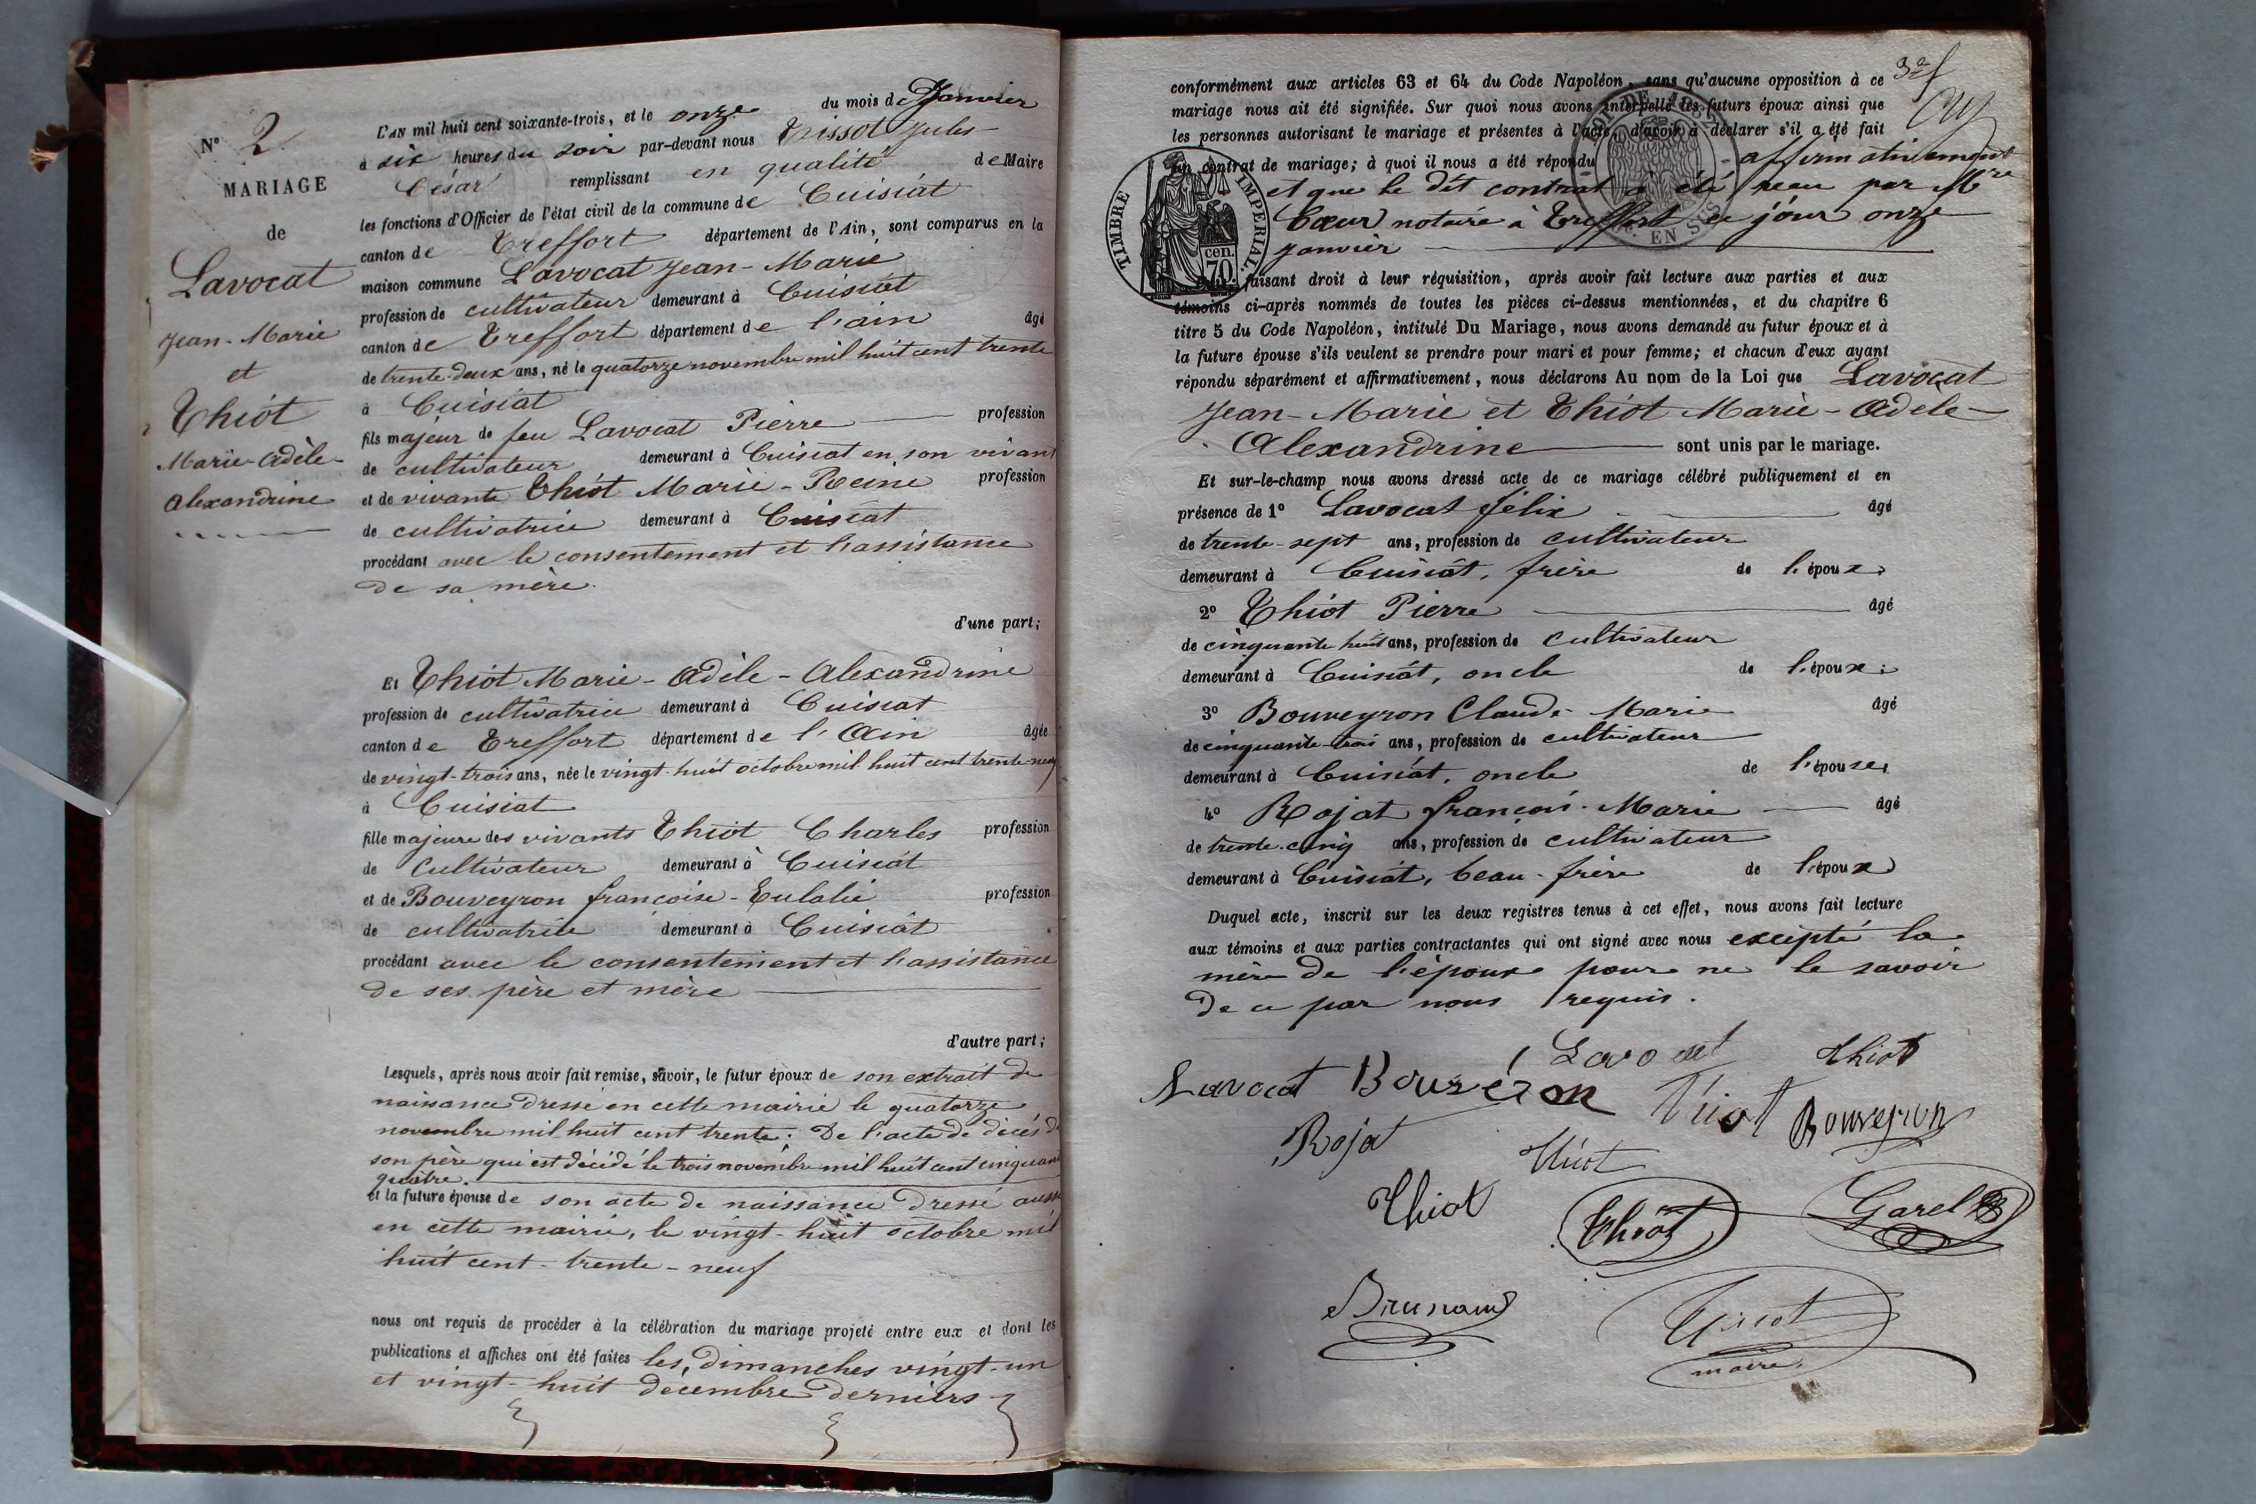 N° 2
MARIAGE
de
Lavocat
Jean-Marie
et
Thiot
Marie-Adèle-
Alexandrine
L'AN mil huit cent soixante-trois, et le onze du mois de Janvier
à six heures du soir par-devant nous Tissot Jules
César remplissant en qualité de Maire
les fonctions d'Officier de l'état civil de la commune de Cuisiat
canton de Treffort département de l'Ain, sont comparus en la
maison commune Lavocat Jean-Marie
profession de cultivateur demeurant à Cuisiat
canton de Treffort département de l'ain âgé
de trente-deux ans, né le quatorze novembre mil huit cent trente
à Cuisiat
fils majeur de feu Lavocat Pierre profession
de cultivateur demeurant à Cuisiat en son vivant
et de vivante Thiot Marie-Reine profession
de cultivatrice demeurant à Cuisiat
procédant avec le consentement et l'assistance
de sa mère.
d'une part;
Et Thiot Marie-Adèle-Alexandrine
profession de cultivatrice demeurant à Cuisiat
canton de Treffort département de l'Ain âgée
de vingt-trois ans, née le vingt-huit octobre mil huit cent trente-neuf
à Cuisiat
fille majeure des vivants Thiot Charles profession
de Cultivateur demeurant à Cuisiat
et de Bouveyron françoise-Eulalie profession
de cultivatrice demeurant à Cuisiat
procédant avec le consentement et l'assistance
de ses père et mère
d'autre part;
Lesquels, après nous avoir fait remise, savoir, le futur époux de son extrait de
naissance dressé en cette mairie le quatorze
novembre mil huit cent trente; De l'acte de décès de
son père qui est décédé le trois novembre mil huit cent cinquante
quatre.
et la future épouse de son acte de naissance dressé aussi
en cette mairie, le vingt-huit octobre mil
huit cent-trente-neuf
nous ont requis de procéder à la célébration du mariage projeté entre eux et dont les
publications et affiches ont été faites les dimanches vingt-un
et vingt-huit décembre derniers
conformément aux articles 63 et 64 du Code Napoléon, sans qu'aucune opposition à ce
mariage nous ait été signifiée. Sur quoi nous avons interpellé les futurs époux ainsi que
les personnes autorisant le mariage et présentes à l'acte, d'avoir à déclarer s'il a été fait
un contrat de mariage; à quoi il nous a été répondu affirmativement
et que le dit contrat a été reçu par Mtre
Cœur notaire à Treffort ce jour onze
janvier
TIMBRE IMPERIAL.
cen.
70.
EN SUS
faisant droit à leur réquisition, après avoir fait lecture aux parties et aux
témoins ci-après nommés de toutes les pièces ci-dessus mentionnées, et du chapitre 6
titre 5 du Code Napoléon, intitulé Du Mariage, nous avons demandé au futur époux et à
la future épouse s'ils veulent se prendre pour mari et pour femme; et chacun d'eux ayant
répondu séparément et affirmativement, nous déclarons Au nom de la Loi que Lavocat
Jean-Marie et Thiot Marie-Adèle-
Alexandrine sont unis par le mariage.
Et sur-le-champ nous avons dressé acte de ce mariage célébré publiquement et en
présence de 1° Lavocat félix âgé
de trente-sept ans, profession de cultivateur
demeurant à Cuisiat, frère de l'époux;
2° Thiot Pierre âgé
de cinquante huit ans, profession de cultivateur
demeurant à Cuisiat, oncle de l'époux;
3° Bouveyron Claude-Marie âgé
de cinquante-trois ans, profession de cultivateur
demeurant à Cuisiat, oncle de l'épouse,
4° Rojat françois-Marie âgé
de trente-cinq ans, profession de cultivateur
demeurant à Cuisiat, beau-frère de l'époux
Duquel acte, inscrit sur les deux registres tenus à cet effet, nous avons fait lecture
aux témoins et aux parties contractantes qui ont signé avec nous excepté la
mère de l'époux pour ne le savoir
de ce par nous requis.
Lavocat Thiot
Lavocat Bouvéron Tiiot Bouveyron
Rojat Thiot
Thiot Thiot Garel
Brunand Tissot
maire.